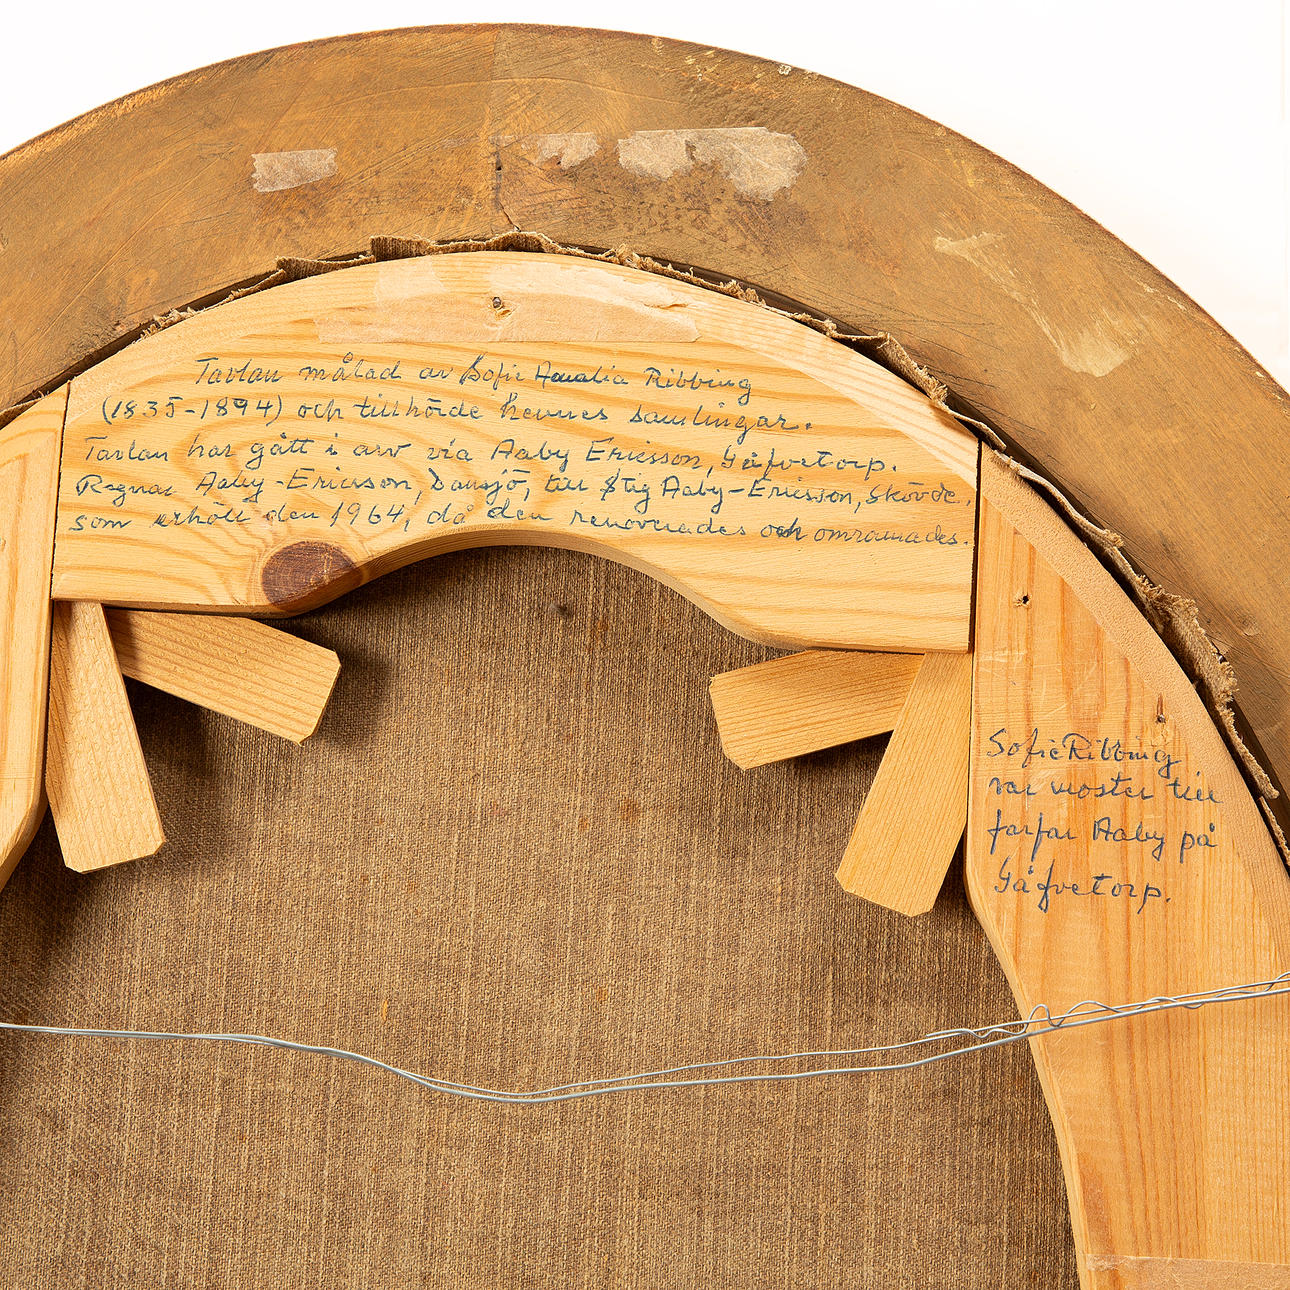 Tavlan målad av Sofie Amalia Ribbing
(1835-1894) och tillhörde hennes samlingar.
Tavlan har gått i arv via Aaby Ericsson, Gåfvetorp.
Ragnar Aaby-Ericsson, Dansjö, till Stig Aaby-Ericsson, Skövde,
som erhöll den 1964, då den renoverades och omramades.
Sofie Ribbing
var moster till
farfar Aaby på
Gåfvetorp.